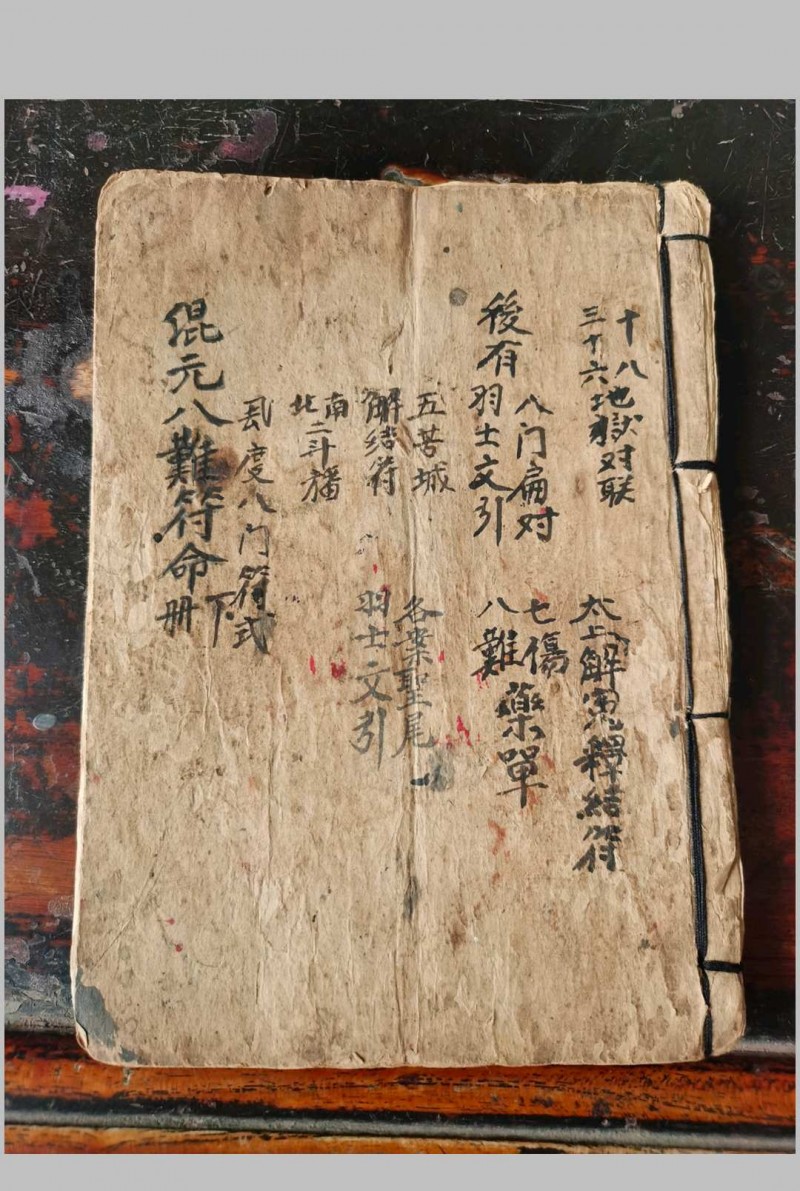 十八地獄对联
三十六
太上解冤釋結符
後有
八门扁对
羽士文引
七傷
八難
藥單
五苦城
解结符
各案聖尾
羽士文引
南
北二斗旛
風度八门符式
混元八難符命册下